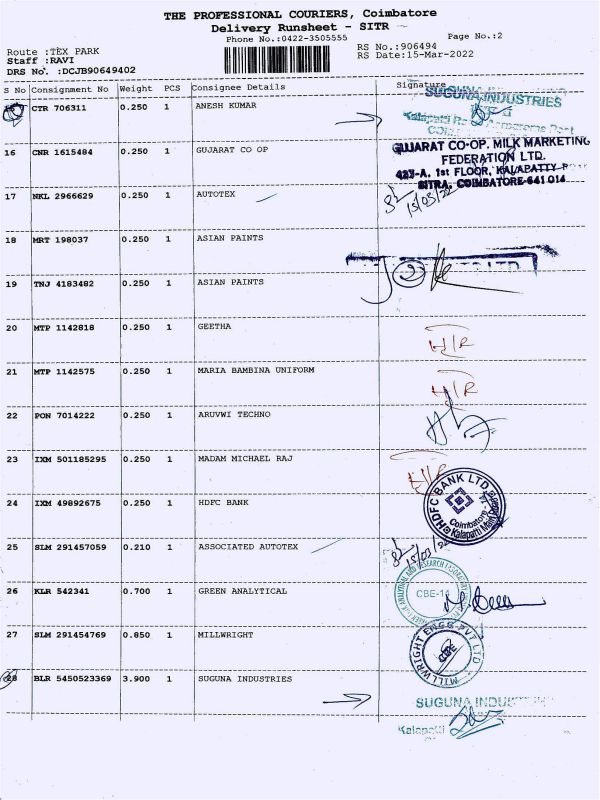 THE PROFESSIONAL COURIERS, Coimbatore
Delivery Runsheet - SITR
Phone No.:0422-3505555
Page No.:2
Route :TEX PARK
Staff :RAVI
DRS No. :DCJB90649402
RS No.:906494
RS Date:15-Mar-2022
S No Consignment No Weight PCS Consignee Details Signature
CTR 706311 0.250 1 ANESH KUMAR
SUGUNA INDUSTRIES
Kalapatti
16 CNR 1615484 0.250 1 GUJARAT CO OP
GUJARAT CO-OP. MILK MARKETING
FEDERATION LTD.
423-A, 1st FLOOR, KALAPATTY
SITRA, COIMBATORE-641 014
17 NKL 2966629 0.250 1 AUTOTEX
15/03/22
18 MRT 198037 0.250 1 ASIAN PAINTS
19 TNJ 4183482 0.250 1 ASIAN PAINTS
20 MTP 1142818 0.250 1 GEETHA
H/R
21 MTP 1142575 0.250 1 MARIA BAMBINA UNIFORM
H/R
22 PON 7014222 0.250 1 ARUVWI TECHNO
23 IXM 501185295 0.250 1 MADAM MICHAEL RAJ
H/R
24 IXM 49892675 0.250 1 HDFC BANK
HDFC BANK LTD.
Coimbatore
Kalapatti Main Road
25 SLM 291457059 0.210 1 ASSOCIATED AUTOTEX
15/03/22
26 KLR 542341 0.700 1 GREEN ANALYTICAL
CBE-14
27 SLM 291454769 0.850 1 MILLWRIGHT
MILLWRIGHT ENGG PVT LTD
CBE
28 BLR 5450523369 3.900 1 SUGUNA INDUSTRIES
SUGUNA INDUSTRIES
Kalapatti